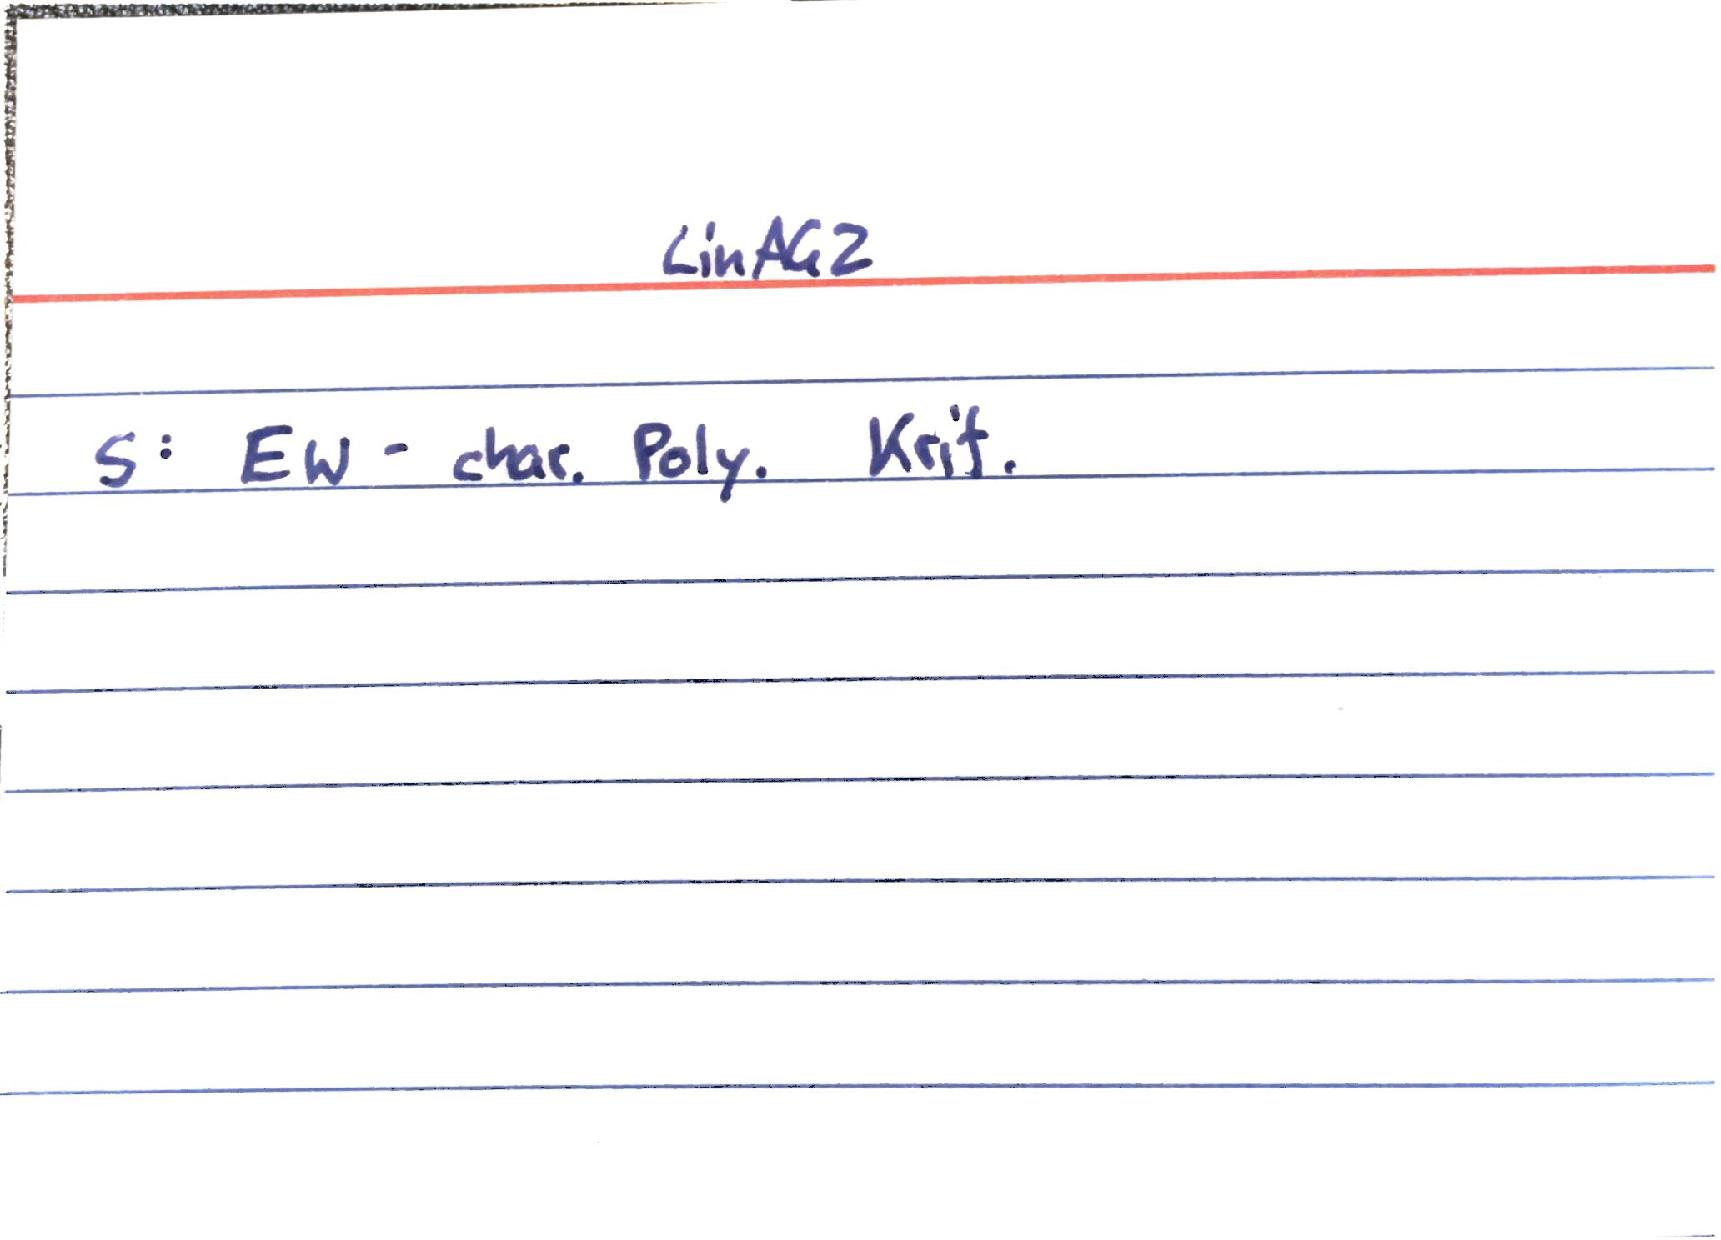 LinAG2
S: EW - char. Poly. Krit.